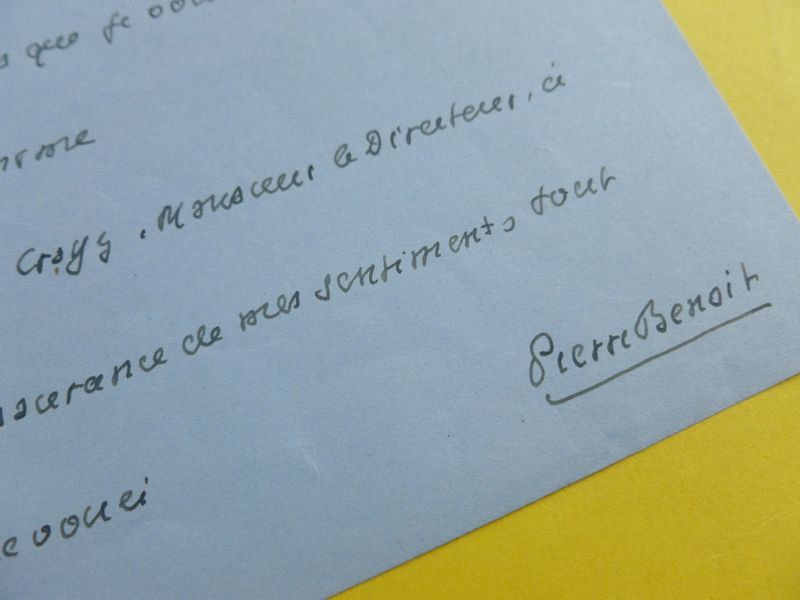 que je vou
Croyez, Monsieur le Directeur, à
ssurance de mes sentiments tout
Pierre Benoit
evoués